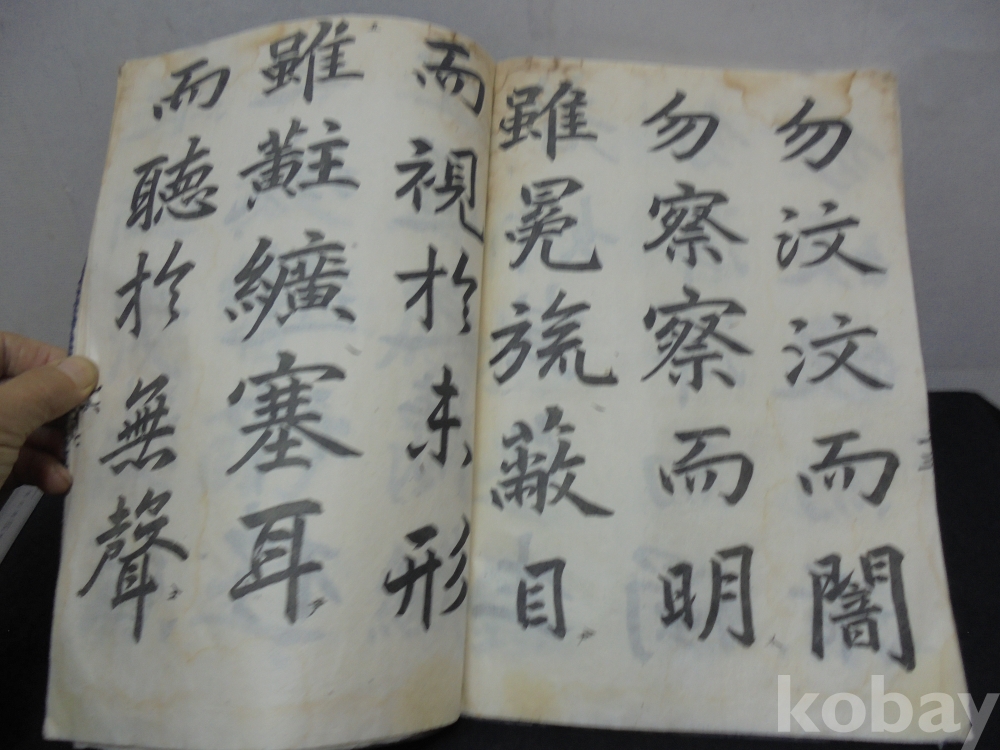 勿汶汶而闇
勿察察而明
雖冕旒蔽目
而視於未形
雖黈纊塞耳
而聽於無聲
kobay